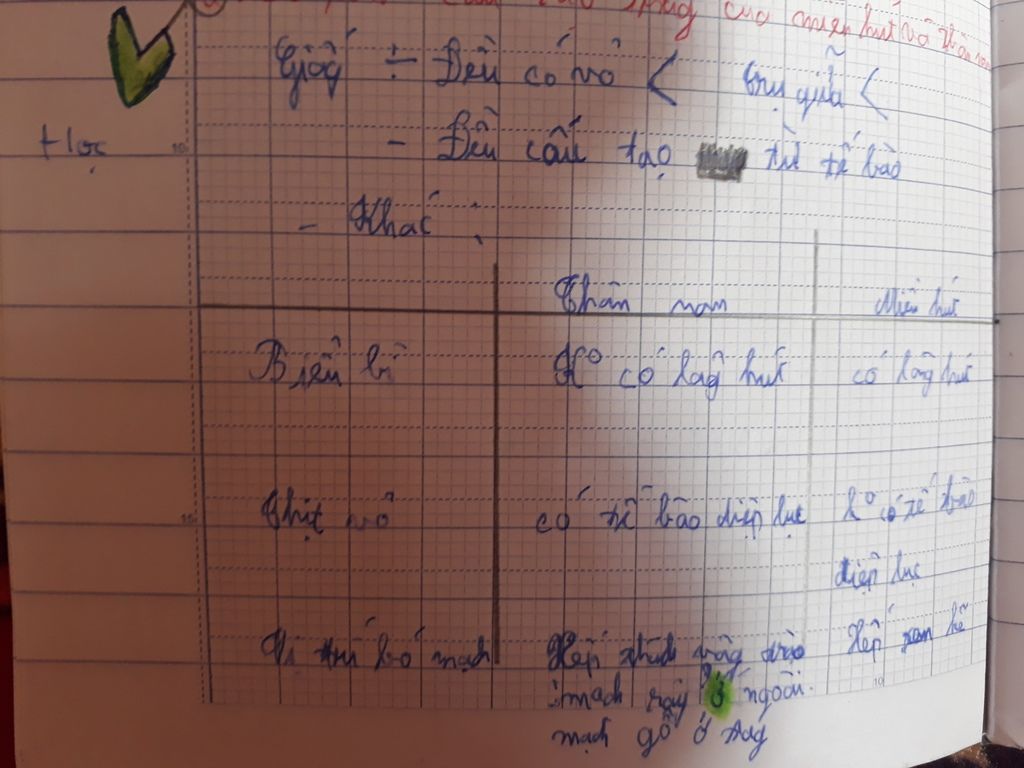 của miền hút và thân non
Giốg ÷ Đều có vỏ < trụ giữa <
+ lọc
- Đều cấu tạo từ tế bào
- Khác :
Thân non Miền hút
Biểu bì K⁰ có lôg hút có lôg hút
Thịt vỏ có tế bào diệp lục k⁰ có tế bào
diệp lục
Vị trí bó mạch Xếp thành vòng Xếp xen kẽ
mạch rây ở ngoài.
mạch gỗ ở trog